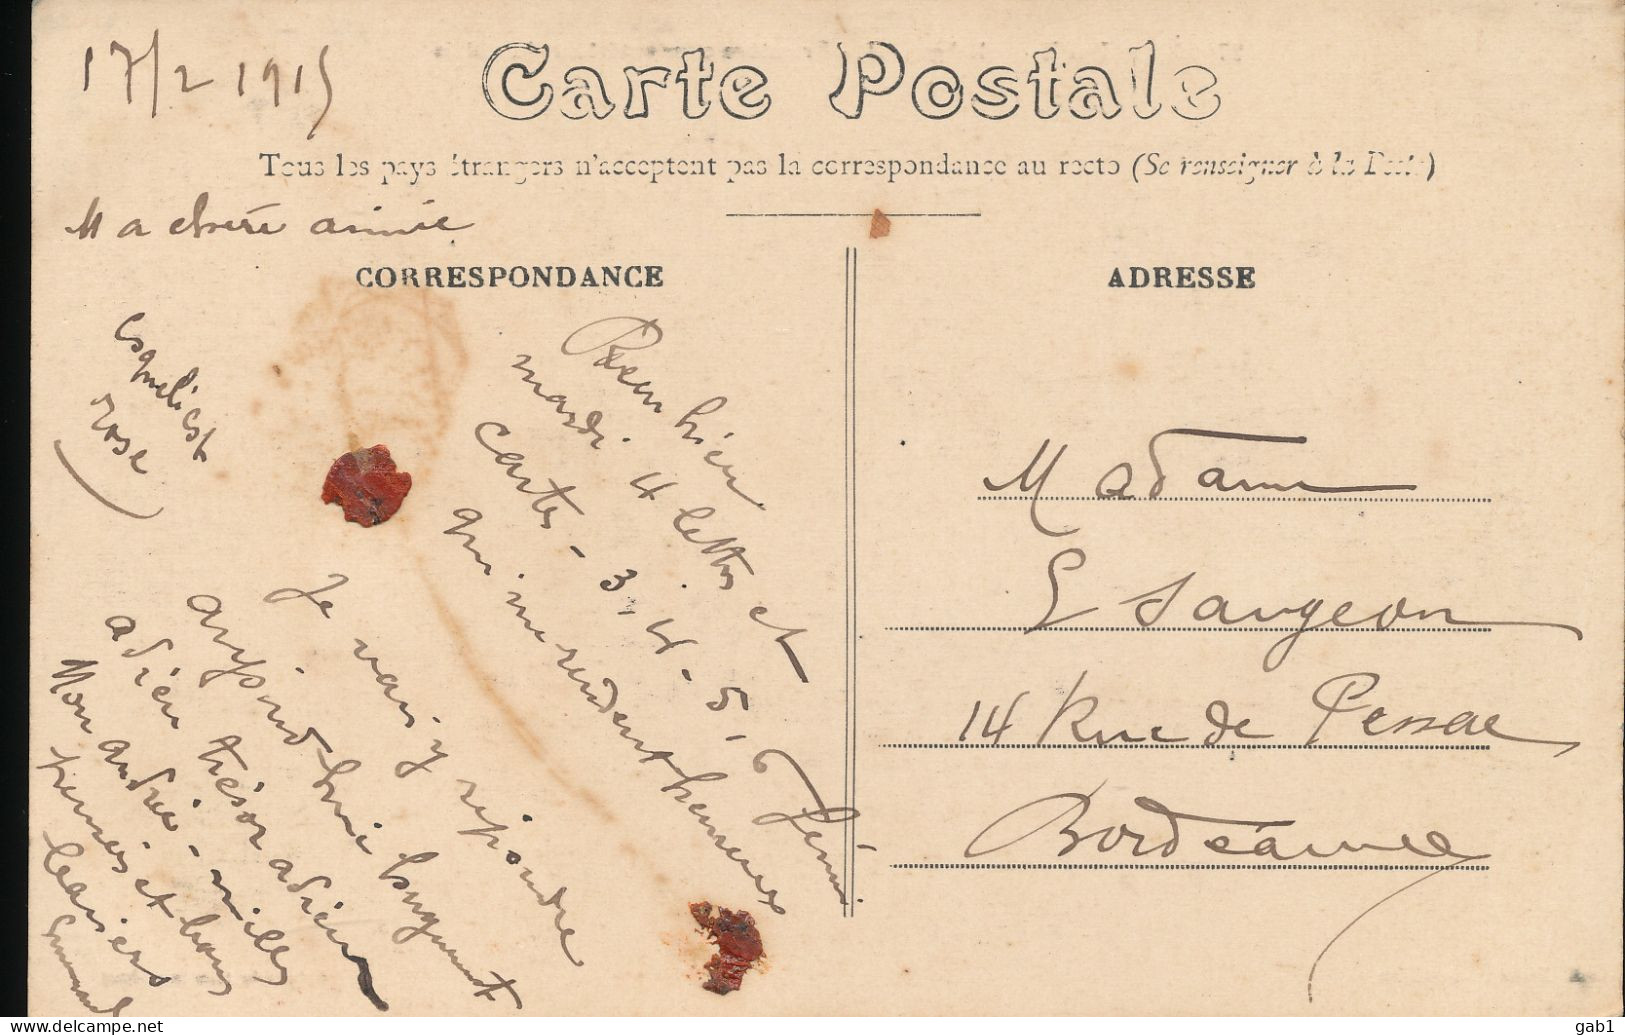 17/2 1915
Carte Postale
Tous les pays étrangers n'acceptent pas la correspondance au recto (Se renseigner à la Poste)
Ma chère aimée
CORRESPONDANCE
Reçu hier
mardi 4 lettres et
cartes - 3. 4 - 5 - 6
qui me rendent heureux
Je vais y répondre
aujourd'hui longuement
adieu trésor adieu
Mon andrée - milles
et bons
baisers
rose
ADRESSE
Madame
E Saugeon
14 Rue de Pessac
Bordeaux
gab1
delcampe.net